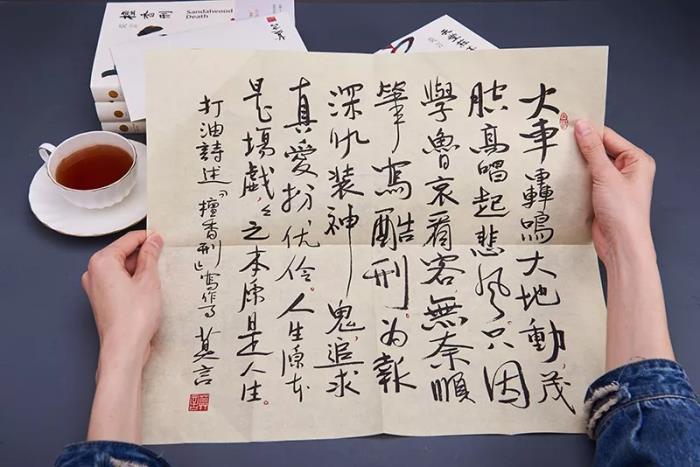 檀香刑
Sandalwood
Death
火車轟鳴大地動，茂
腔高唱起悲風。只因
學魯哀看客，無奈順
筆寫酷刑。为報
深仇装神鬼，追求
真愛扮优伶。人生原本
是場戲，々之本原是人生。
打油詩述《檀香刑》寫作事 莫言